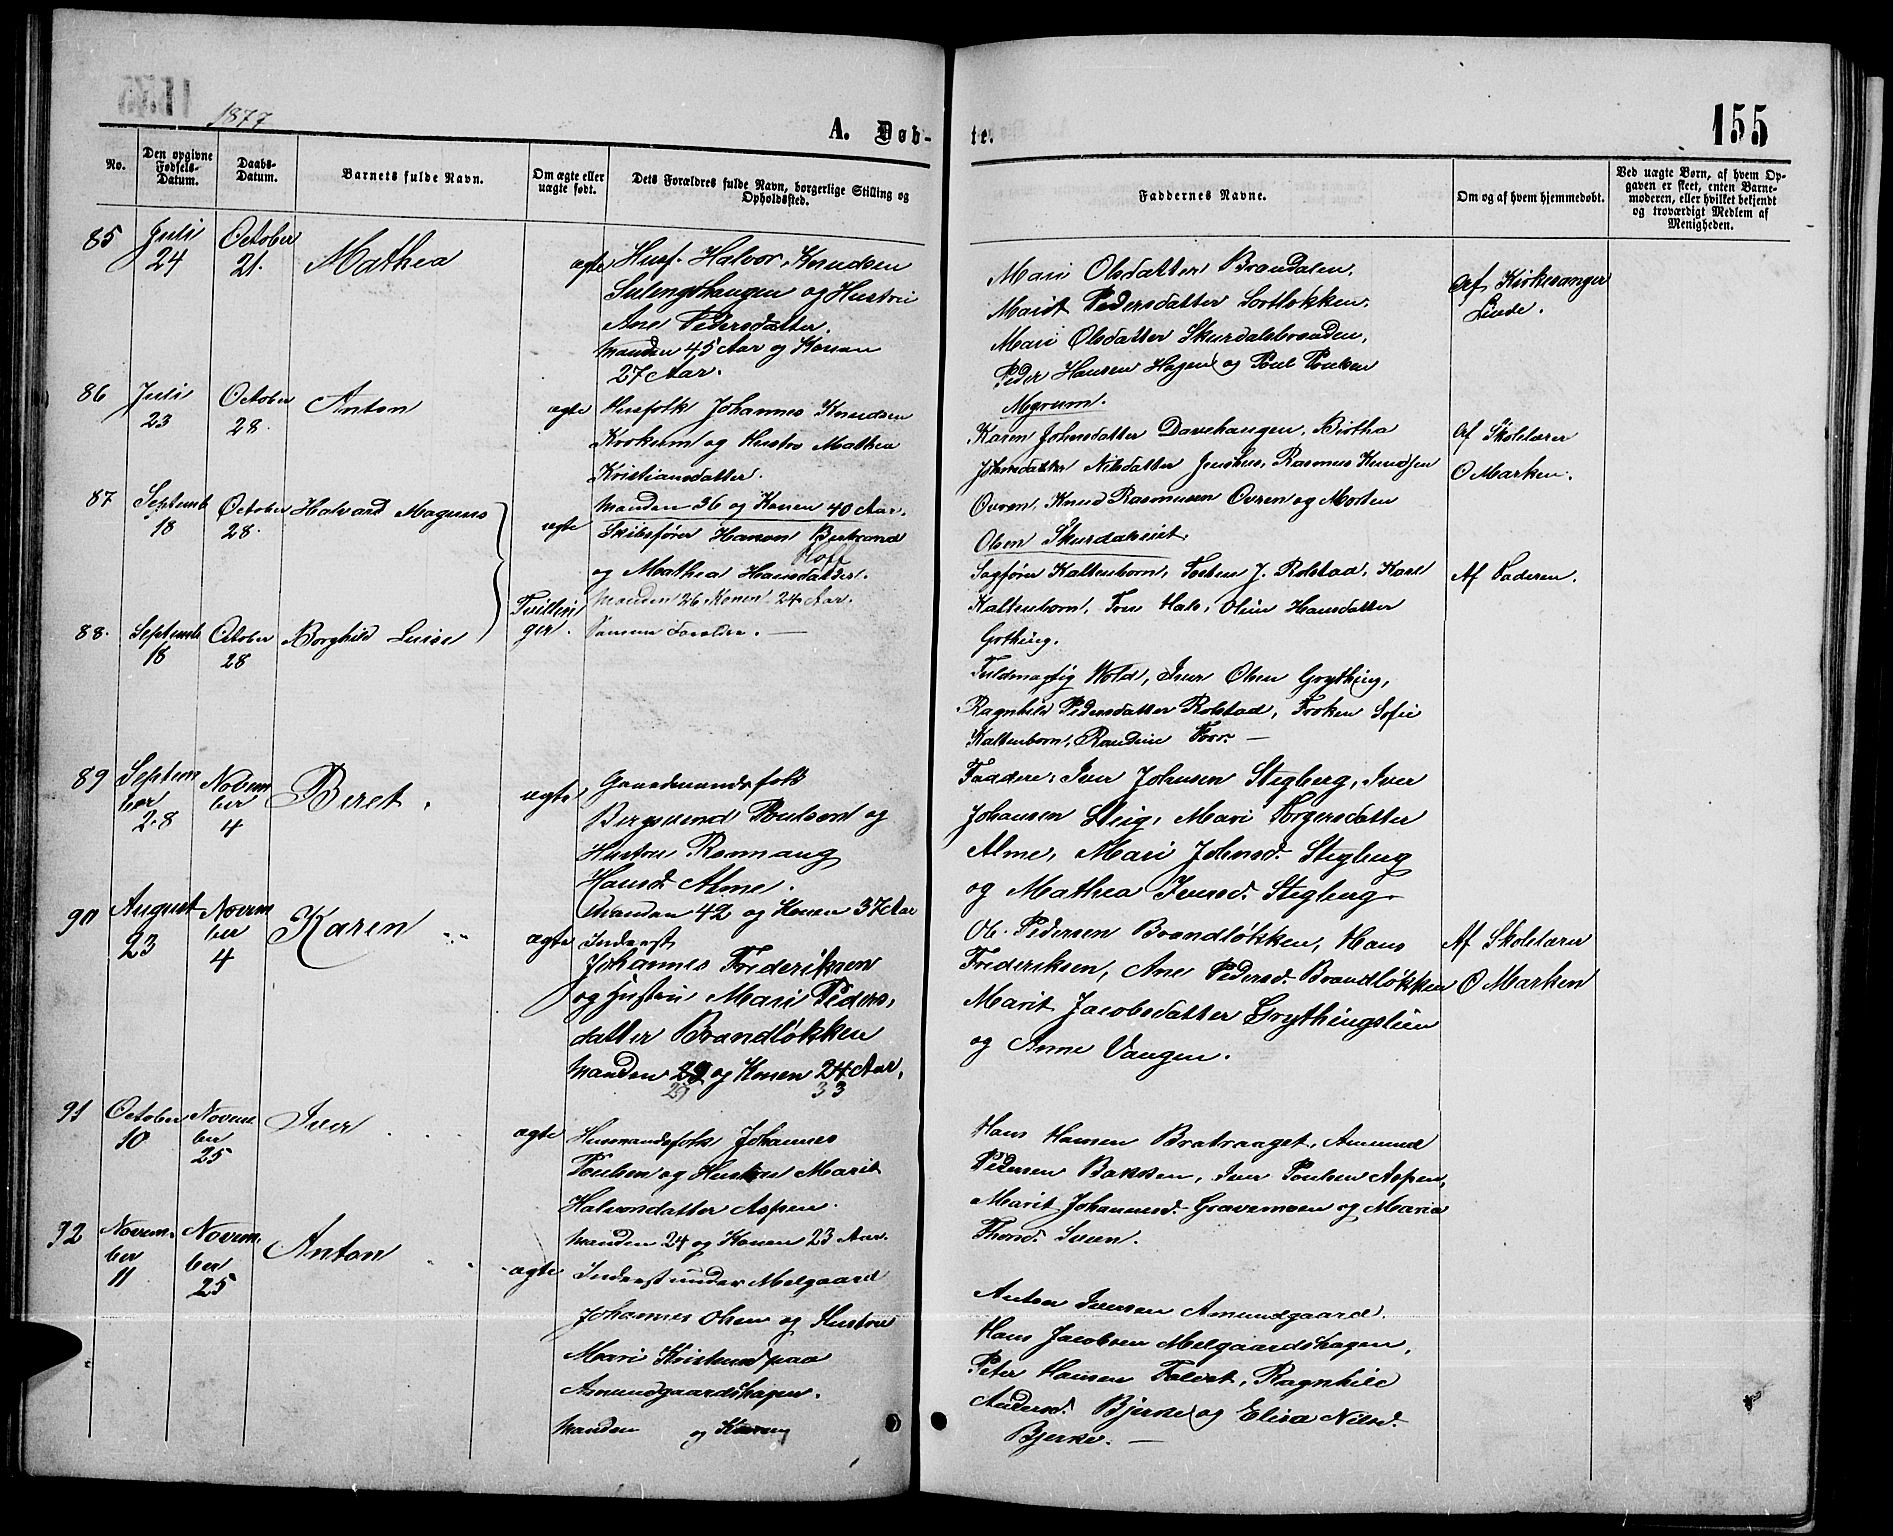 1877
155
A. Døb-
te.
No.
Den opgivne
Fødsels-
Datum.
Daabs-
Datum.
Barnets fulde Navn.
Om ægte eller
uægte født.
Dets Forældres fulde Navn, borgerlige Stilling og
Opholdssted.
Faddernes Navne.
Om og af hvem hjemmedøbt.
Ved uægte Børn, af hvem Op-
gaven er skeet, enten Barne-
moderen, eller hvilket bekjendt
og troværdigt Medlem af
Menigheden.
85 Juli 24 October 21. Mathea ægte Husf. Halvor Knudsen
Sulengshaugen og Hustru
Ane Pedersdatter.
Manden 45 Aar og Konen
27 Aar.
Mari Olsdatter Brandalen,
Marit Pedersdatter Sortløkken,
Mari Olsdatter Skurdalsbranden,
Peder Hansen Hagen og Poul Poulsen
Myrum.
Af Kirkesanger
Linde.
86 Juli 23 October 28. Anton ægte Husfolk Johannes Knudsen
Krokum og Hustro Mathea
Kristiansdatter.
Manden 36 og Konen 40 Aar.
Karen Johnsdatter Davehaugen, Birtha
Johnsdatter Nilsdatter Rasmus Knudsen
Ovren, Knud Rasmusen Ovren og Morten
Olsen
Af Skolelærer
O Marken.
87 Septemb 18 October 28. Halvard Magnus ægte Skibsfører Hanson Bertrand
Hoff
og Mathea Hansdatter.
Manden 26, Konen 24 Aar.
Sagfører Kaltenborn, J. Rolstad, Karl
Kaltenborn, Fru Hals, Oline Hansdatter
Grything.
Af Faderen.
Tvillin-
ger.
88. Septemb 18 October 28 Borghild Luise Samme Forældre. —
Fuldmægtig Wold, Iver Olsen Grything,
Ragnhild Pedersdatter Rolstad, Frøken Sofie
Kaltenborn, Randine —
89 Septem
ber
28 Novem
ber
4 Beret. ægte Gaardmandsfolk
Bergsvend Poulsen og
Hustru Rønnaug
Hansd. Alme.
Manden 42 og Konen 37 Aar
Faddere: Iver Johnsen Stegberg, Iver
Johansen Steig, Mari Torgersdatter
Alme, Mari Johnsd. Stegberg
og Mathea Iversd. Stegberg.
90 August 23 Novem
ber
4 Karen ægte Inderst
Johannes Frederiksen
og Hustru Mari Peders-
datter Brandløkken
Manden 29 og Konen 24 Aar,
29 33
Ole Pedersen Brandløkken, Hans
Frederiksen, Ane Pedersd. Brandløkken
Marit Jacobsdatter Grythingslien
og Anne Vangen.
Af Skolelærer
O Marken
91 October 10 Novem
ber
25 Iver ægte Husmandsfolk Johannes
Poulsen og Hustru Marit
Halvorsdatter Aspen.
Manden 24 og Konen 23 Aar.
Hans Hansen Bratraaget, Amund
Pedersen Bakken, Iver Poulsen Aspen,
Marit Johannesd. Gravemoen og Maria
Thorsd. Sveen.
92 Novem-
ber
11 Novem
ber
25 Anton ægte Inderst under Melgaard
Johannes Olsen og Hustru
Mari Kristensd paa
Amundgaardshagen.
Manden og Konen
Anton Iversen Amundgaard,
Hans Jacobsen Melgaardshagen,
Peter Hansen Ragnhild
Andersd. Bjerke og Elise Nilsd.
Bjerke. —